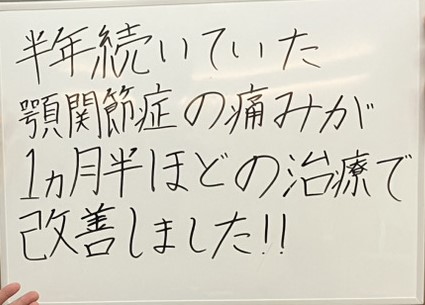 半年続いていた
顎関節症の痛みが
1ヵ月半ほどの治療で
改善しました!!